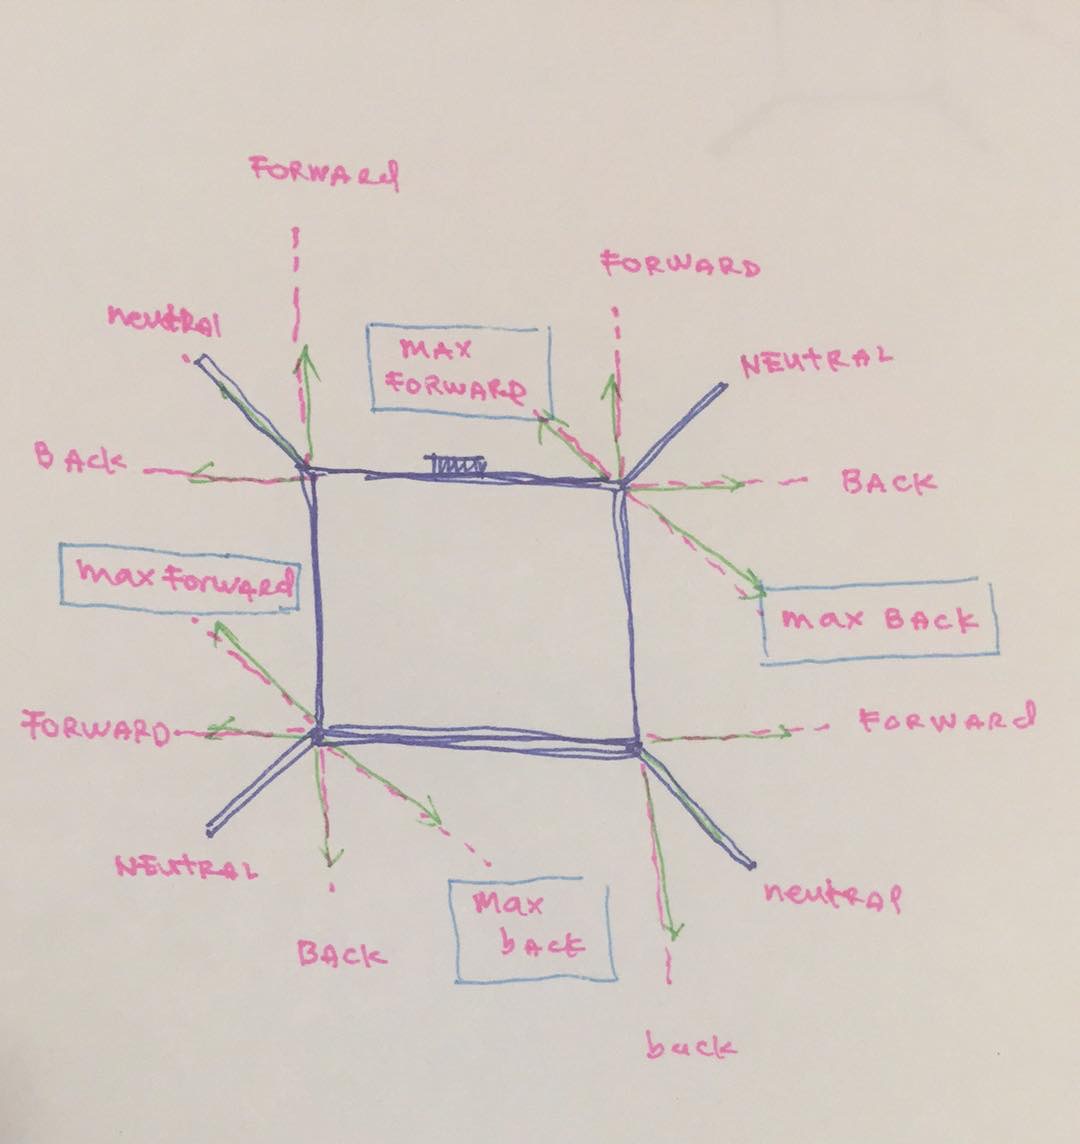 FORWARd
FORWARD
neutRAl
MAX
FORWARD
NEUtRAL
BAck
BACK
max FORWARd
max BACK
FORWARD
FORWARd
NEUtRAL
neutRAl
Max
bACk
BACK
back